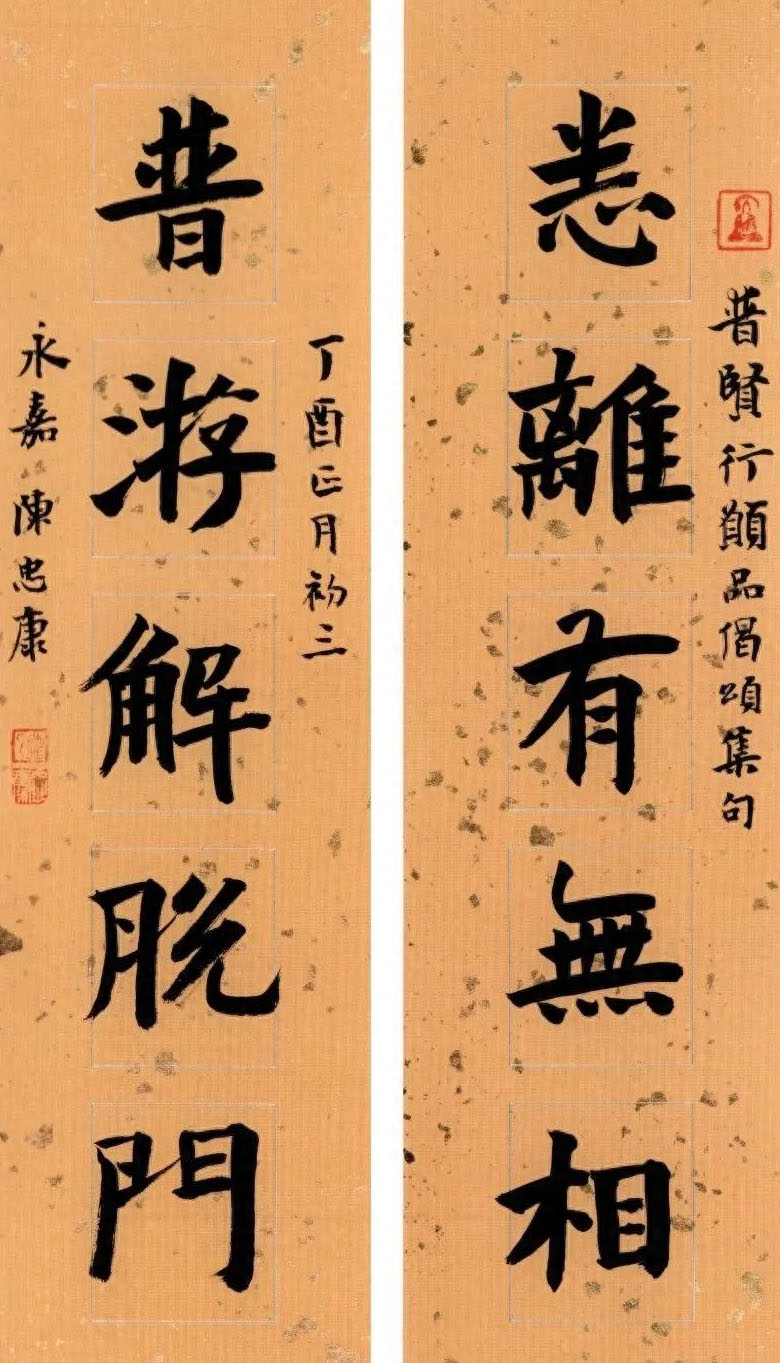 普賢行願品偈頌集句
悉離有無相
丁酉正月初三
普游解脱門
永嘉陳忠康